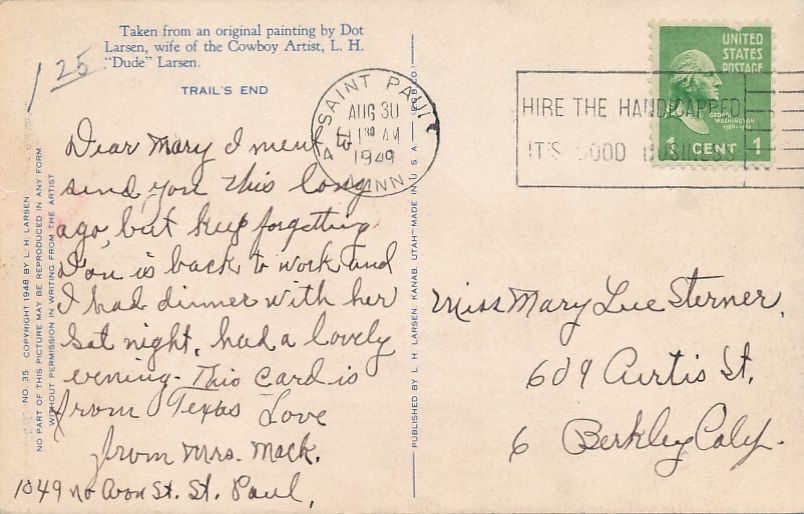 Taken from an original painting by Dot
Larsen, wife of the Cowboy Artist, L. H.
"Dude" Larsen.
TRAIL'S END
1 25
Dear Mary I ment
send you this long
ago, but keep forgetting
is back to work and
I had dinner with her
Sat night. had a lovely
evening. This card is
from Texas Love
from Mrs. Mack.
1049 no Avon St. St. Paul,
NO. 35 COPYRIGHT 1948 BY L. H. LARSEN
NO PART OF THIS PICTURE MAY BE REPRODUCED IN ANY FORM
WITHOUT PERMISSION IN WRITING FROM THE ARTIST
PUBLISHED BY L. H. LARSEN, KANAB, UTAH—MADE IN U. S. A.
SAINT PAUL
AUG 30
AM
1949
MINN.
HIRE THE HANDICAPPED
IT'S GOOD BUSINESS
UNITED
STATES
POSTAGE
GEORGE
WASHINGTON
1 CENT 1
Miss Mary Lue Sterner,
609 Curtis St,
6 Berkley Calif.